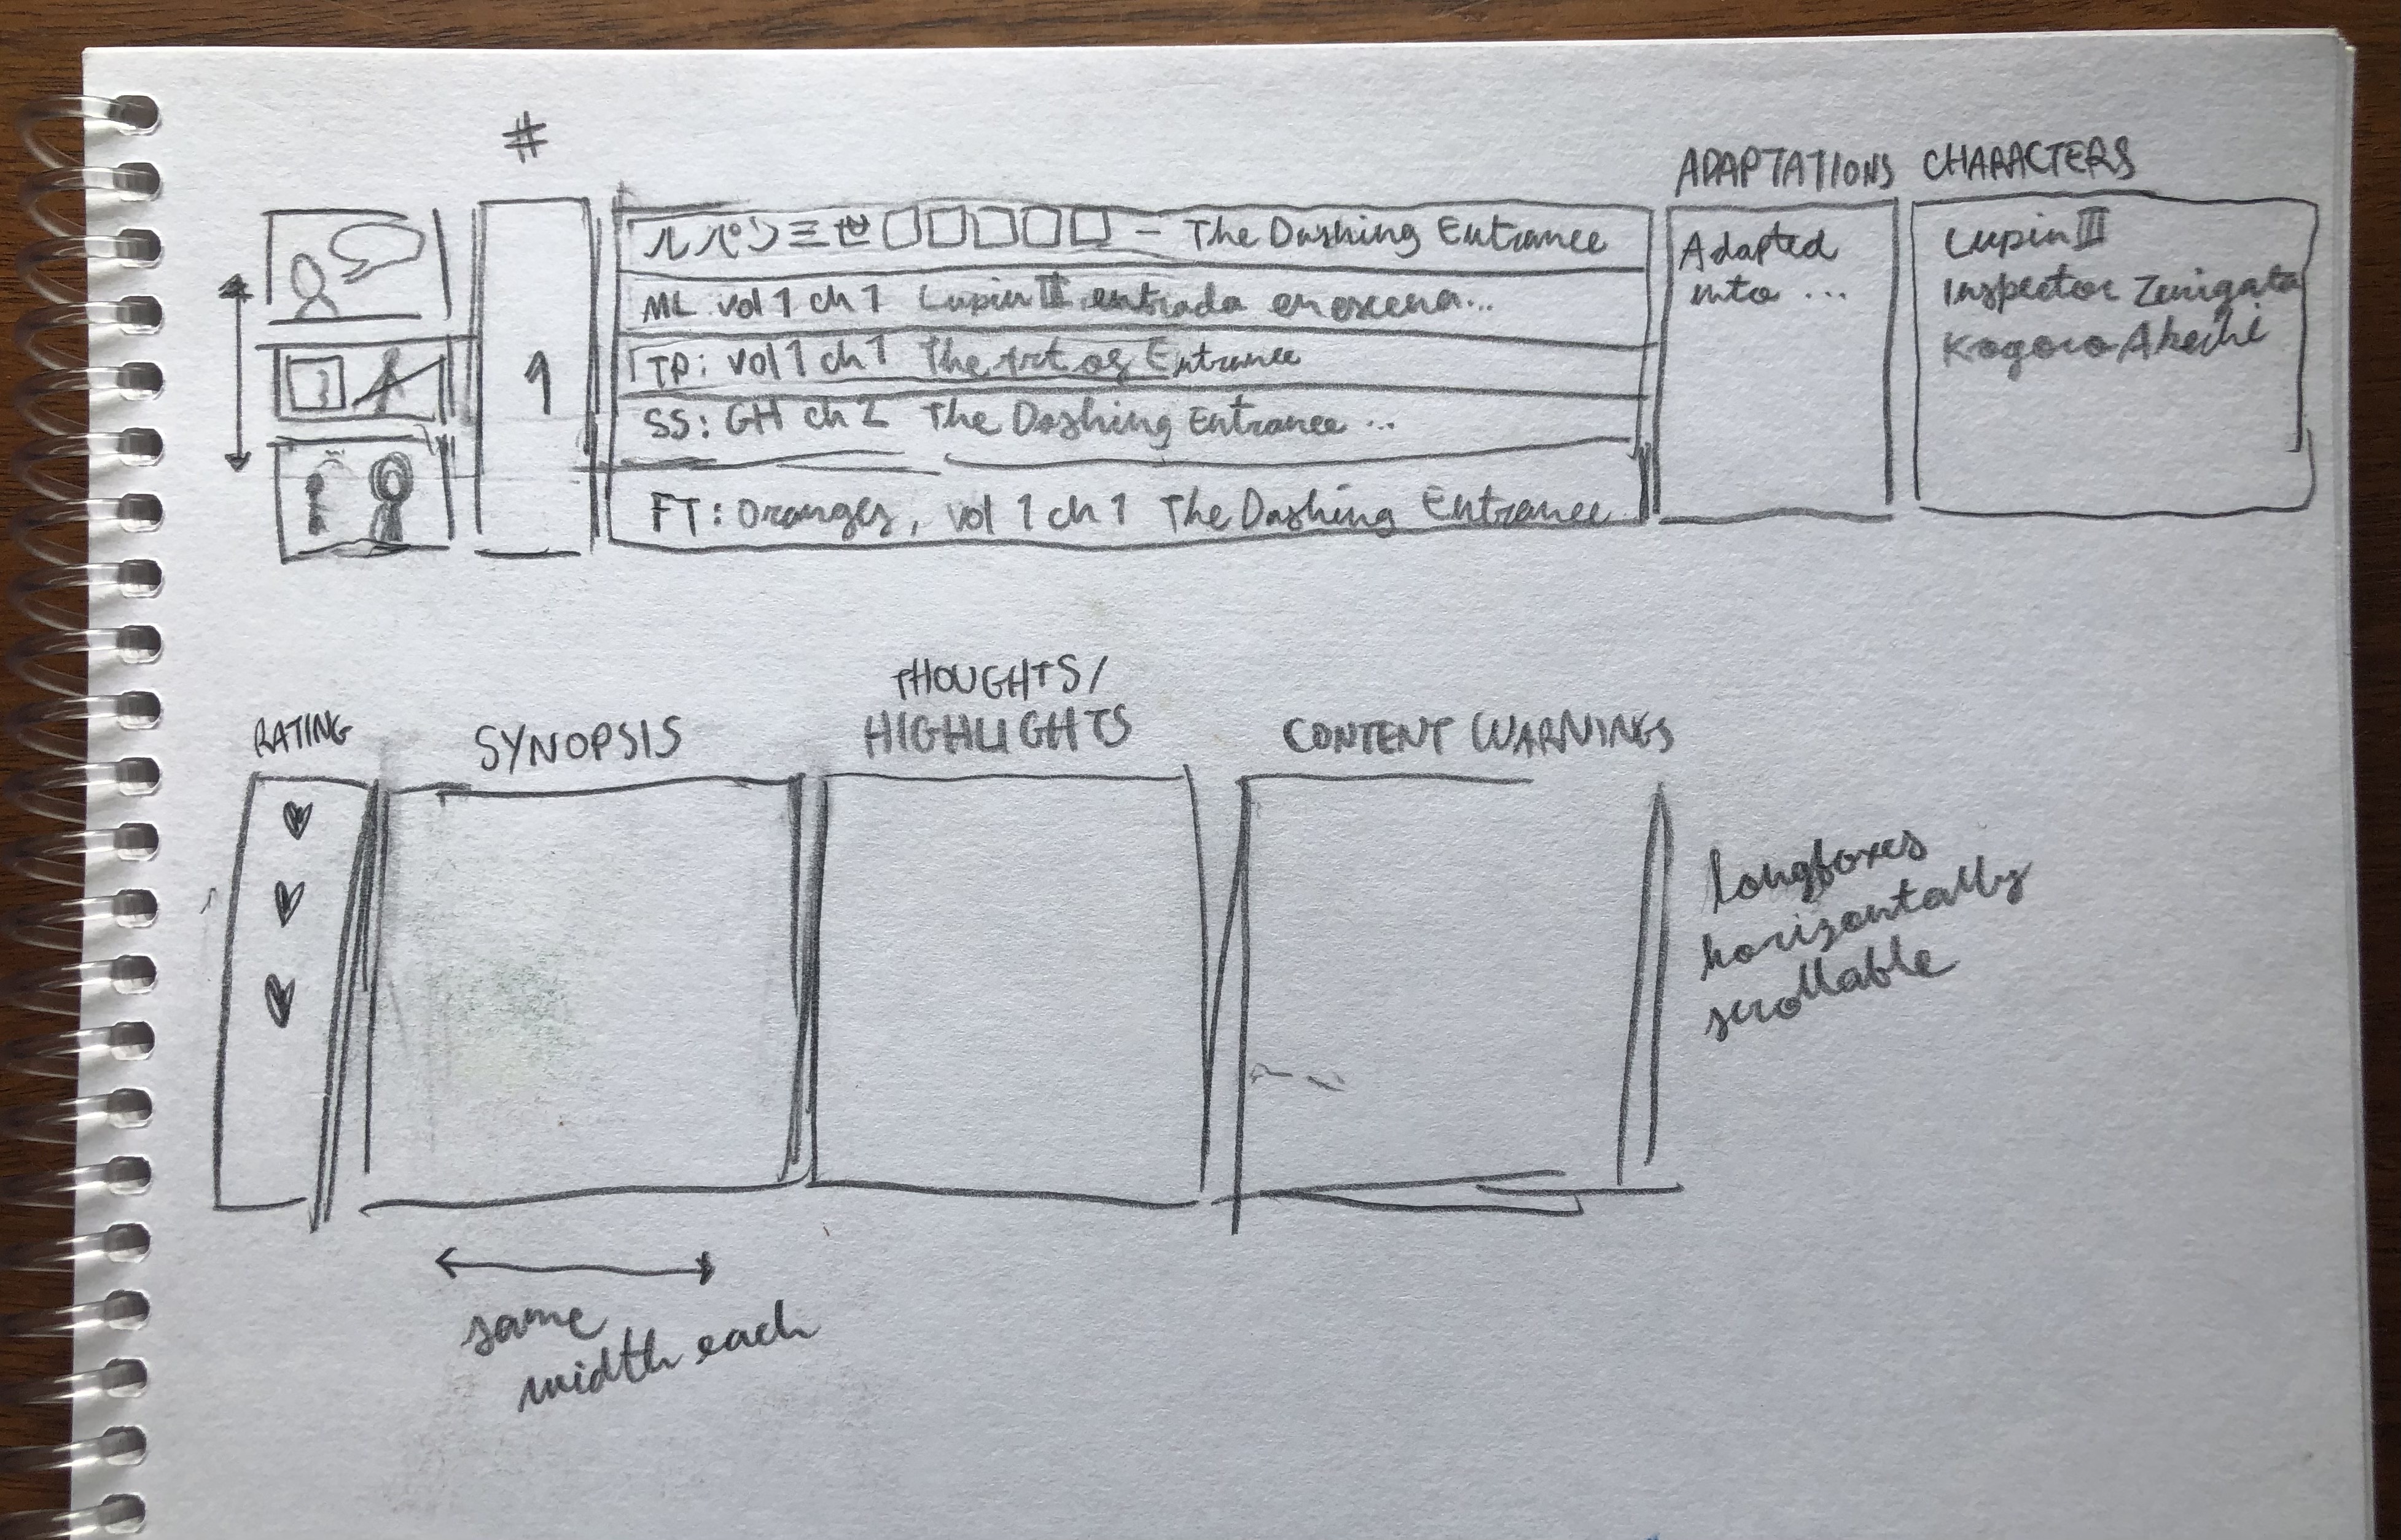 #
ADAPTATIONS
CHARACTERS
1
ルパン三世□□□□□ – The Dashing Entrance
ML vol 1 ch 1 Lupin III entrada en escena...
TP: vol 1 ch 1 The Art of Entrance
SS: GH ch 2 The Dashing Entrance ...
FT: Oranges, vol 1 ch 1 The Dashing Entrance
Adapted
into ...
Lupin III
Inspector Zenigata
Kogoro Akechi
RATING
SYNOPSIS
THOUGHTS/
HIGHLIGHTS
CONTENT WARNINGS
longboxes
horizontally
scrollable
same
width each